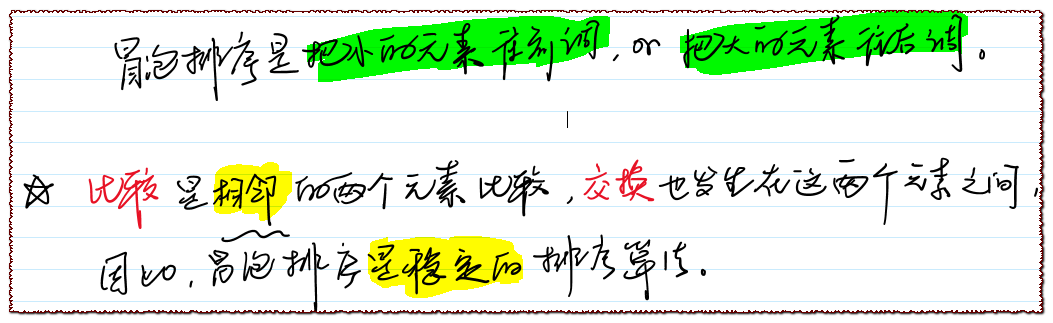 冒泡排序是把小的元素往前调，or 把大的元素往后调。
☆ 比较是相邻的两个元素比较，交换也发生在这两个元素之间，
因此，冒泡排序是稳定的排序算法。